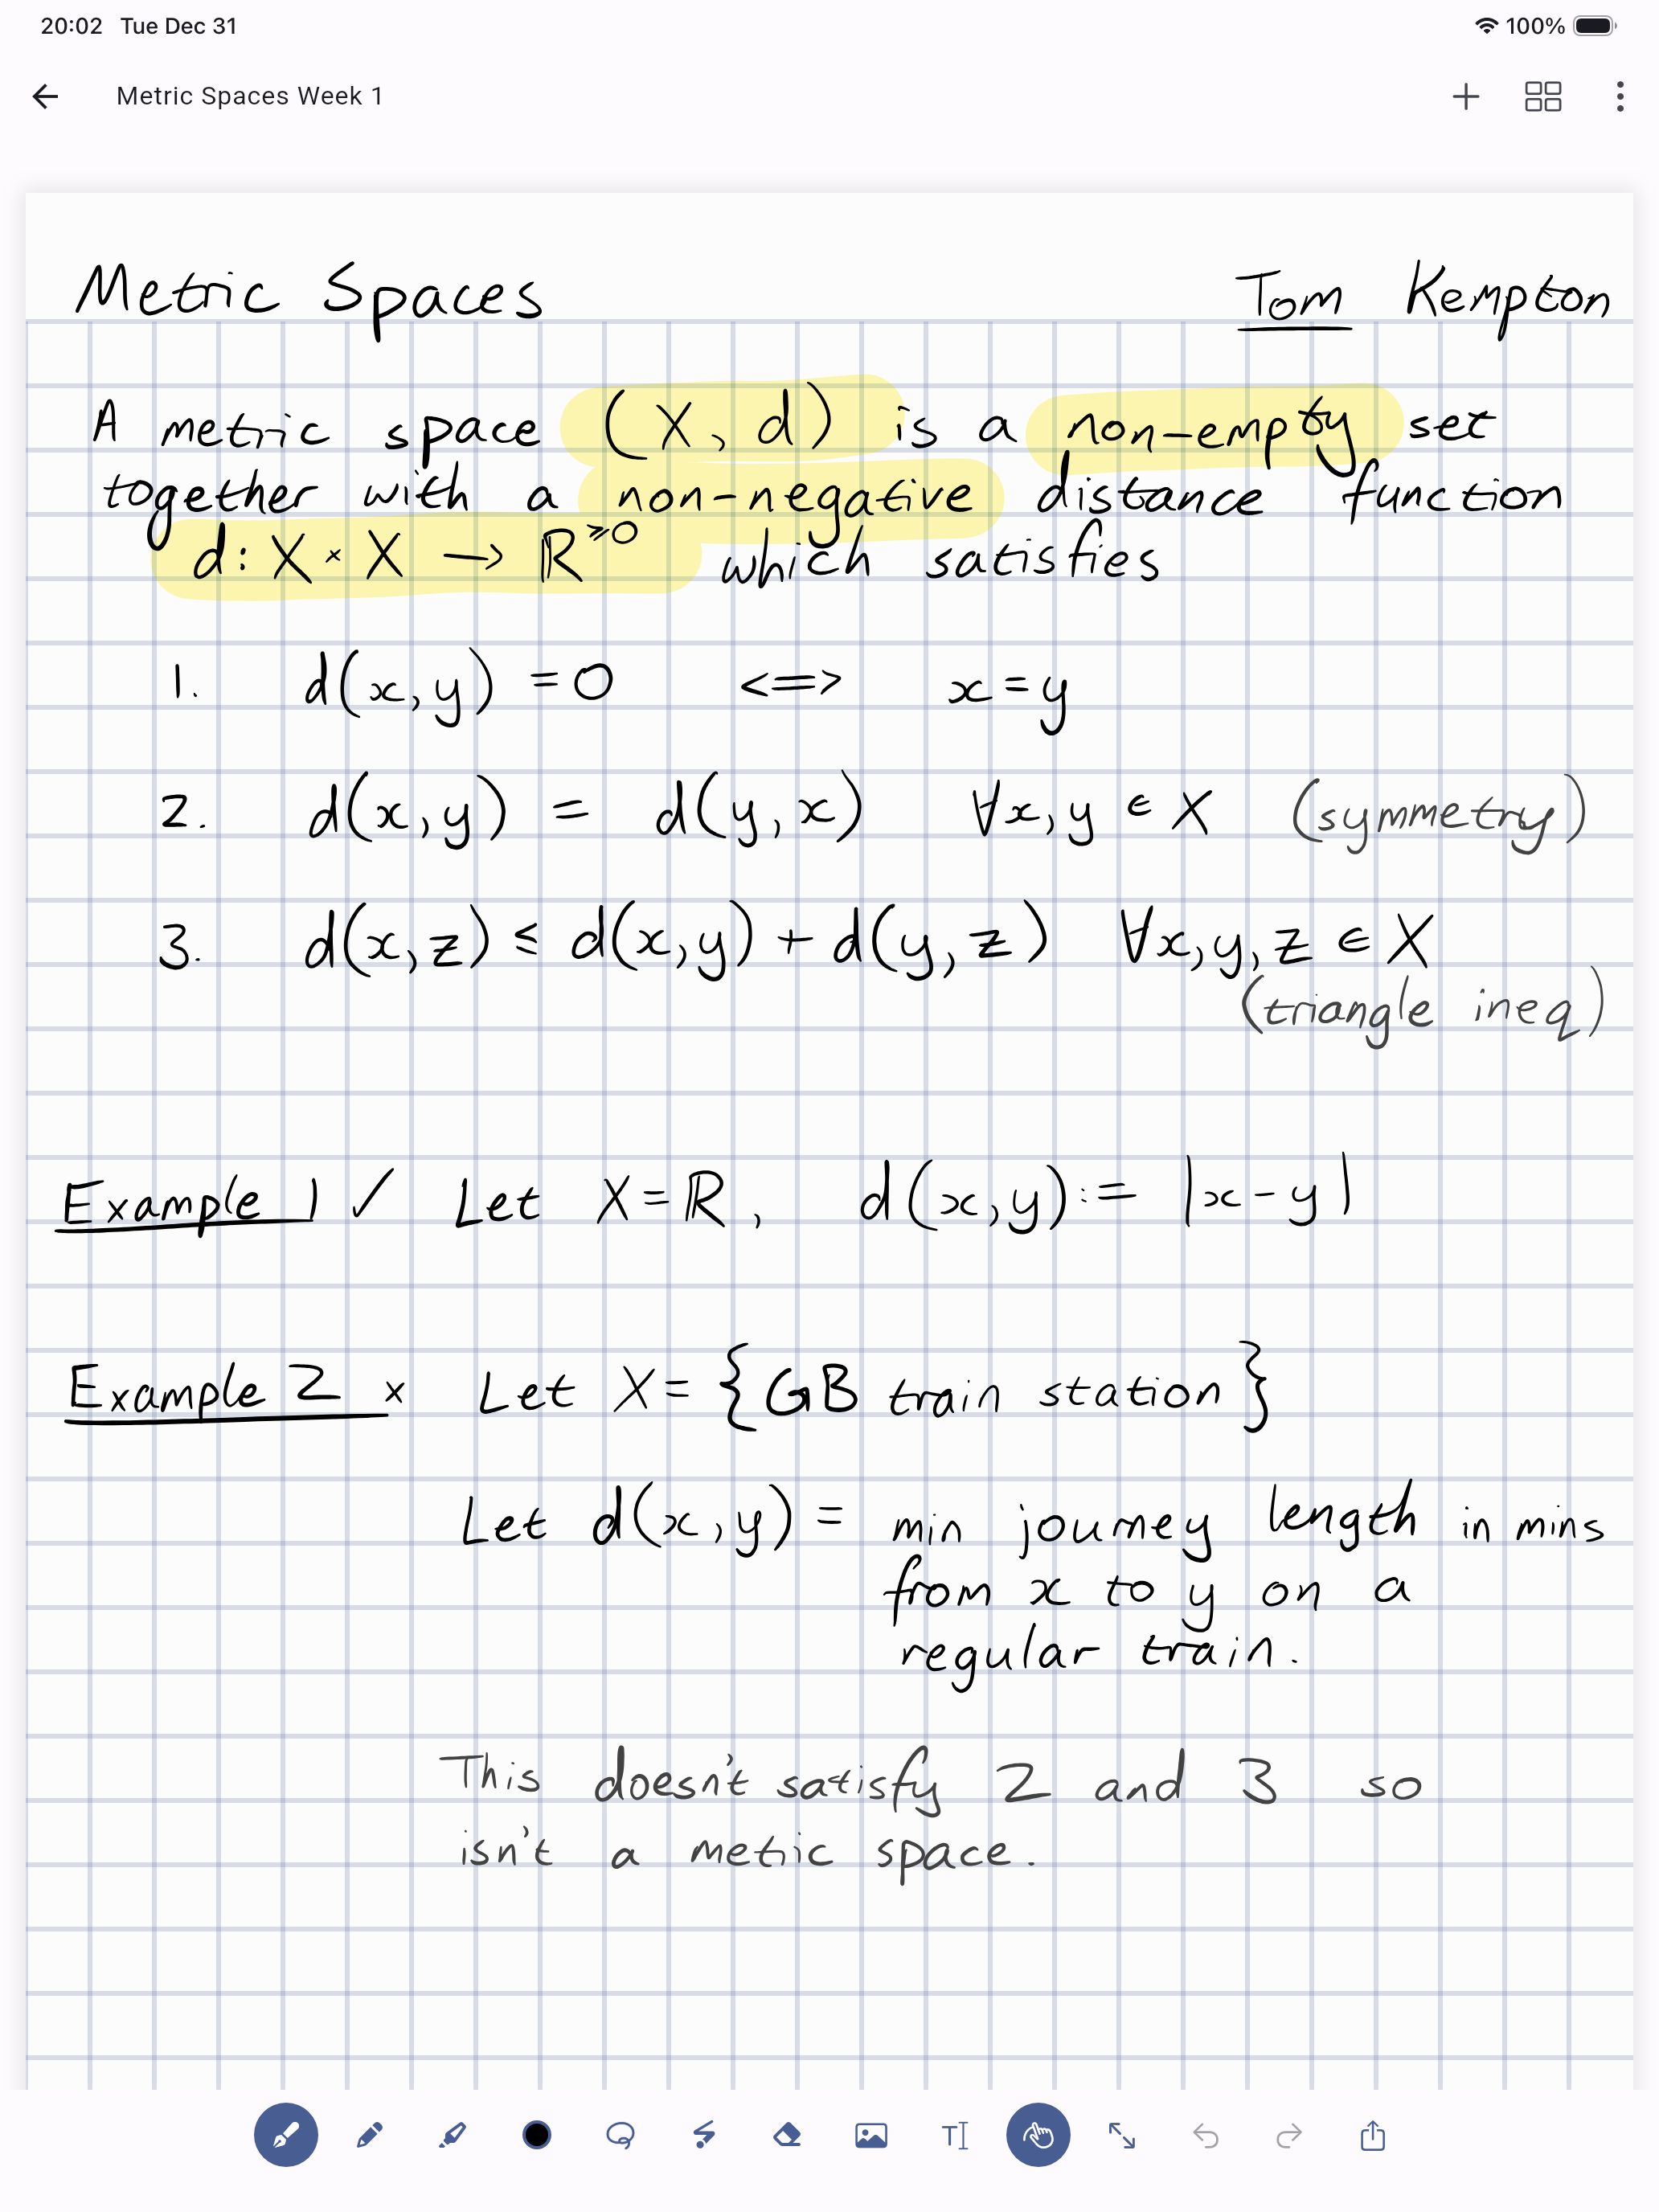 20:02 Tue Dec 31 100%
Metric Spaces Week 1
Metric Spaces Tom Kempton
A metric space (X, d) is a non-empty set
together with a non-negative distance function
d: X × X → ℝ^≥0 which satisfies
1. d(x,y) = 0 <=> x=y
2. d(x,y) = d(y,x) ∀x,y ∈ X (symmetry)
3. d(x,z) ≤ d(x,y) + d(y,z) ∀x,y,z ∈ X
(triangle ineq)
Example 1 ✓ Let X=ℝ, d(x,y):= |x-y|
Example 2 × Let X= {GB train station}
Let d(x,y) = min journey length in mins
from x to y on a
regular train.
This doesn't satisfy 2 and 3 so
isn't a metic space.